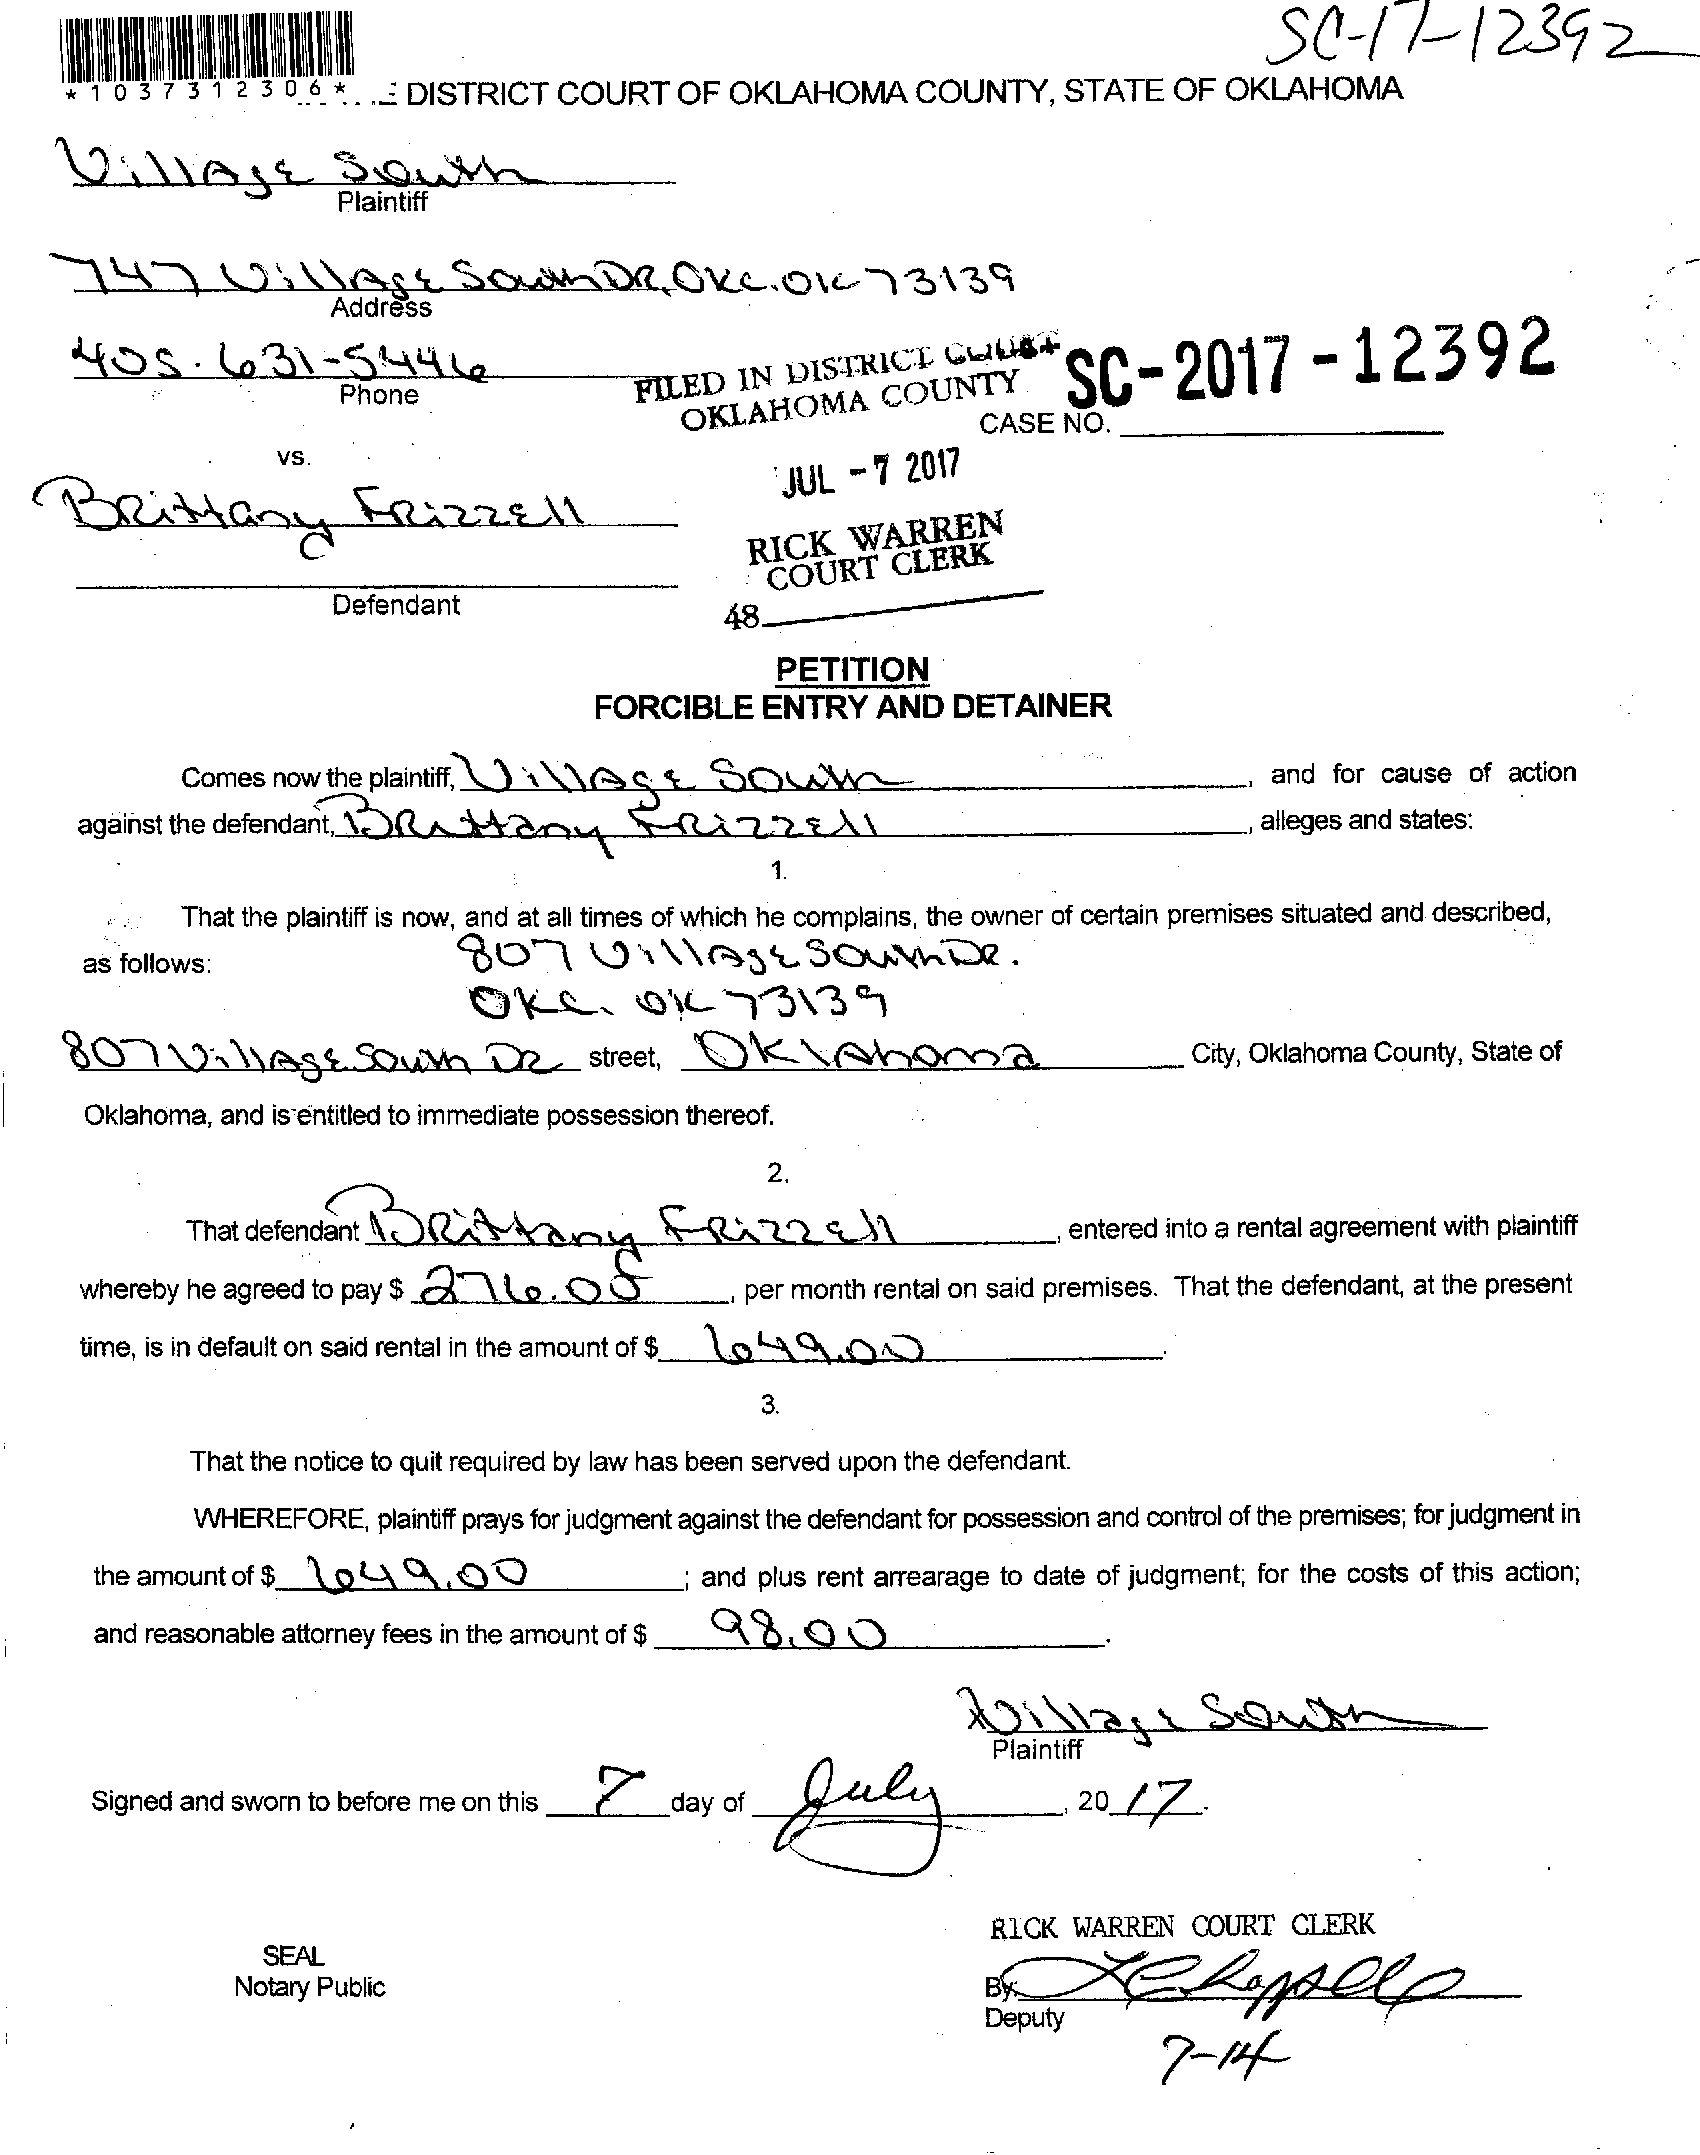 SC-17-12392
*1037312306*
DISTRICT COURT OF OKLAHOMA COUNTY, STATE OF OKLAHOMA
Village South
Plaintiff
747 Village South DR, OKC. OK 73139
Address
405.631-5446
Phone
FILED IN DISTRICT COURT
OKLAHOMA COUNTY
SC-2017-12392
CASE NO.
vs.
JUL -7 2017
Brittany Frizzell
RICK WARREN
COURT CLERK
Defendant
48
PETITION
FORCIBLE ENTRY AND DETAINER
Comes now the plaintiff, Village South, and for cause of action
against the defendant, Brittany Frizzell, alleges and states:
1.
That the plaintiff is now, and at all times of which he complains, the owner of certain premises situated and described,
as follows: 807 Village South DR.
OKC. OK 73139
807 Village South DR street, Oklahoma City, Oklahoma County, State of
Oklahoma, and is entitled to immediate possession thereof.
2.
That defendant Brittany Frizzell, entered into a rental agreement with plaintiff
whereby he agreed to pay $ 276.05, per month rental on said premises. That the defendant, at the present
time, is in default on said rental in the amount of $ 649.00.
3.
That the notice to quit required by law has been served upon the defendant.
WHEREFORE, plaintiff prays for judgment against the defendant for possession and control of the premises; for judgment in
the amount of $ 649.00; and plus rent arrearage to date of judgment; for the costs of this action;
and reasonable attorney fees in the amount of $ 98.00.
Village South
Plaintiff
Signed and sworn to before me on this 7 day of July, 2017.
RICK WARREN COURT CLERK
SEAL
Notary Public
By:
Deputy
7-14